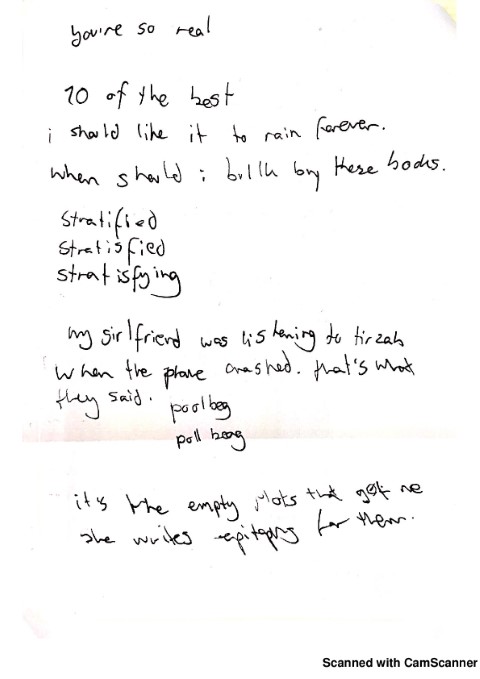 you're so real
10 of the best
i should like it to rain forever.
when should i by these books.
stratified
stratisfied
stratisfying
my girlfriend was listening to tirzah
when the plane crashed. that's what
they said.
poolbeg
poll beag
it's the empty plots that get me
she writes epitaphs for them.
Scanned with CamScanner